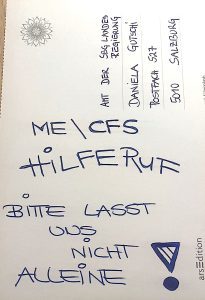 AMT DER SBG LANDES
REGIERUNG
DANIELA GUTSCHI
POSTFACH 527
5010 SALZBURG
ME\CFS
HILFERUF
BITTE LASST
UNS
NICHT
ALLEINE !
arsEdition